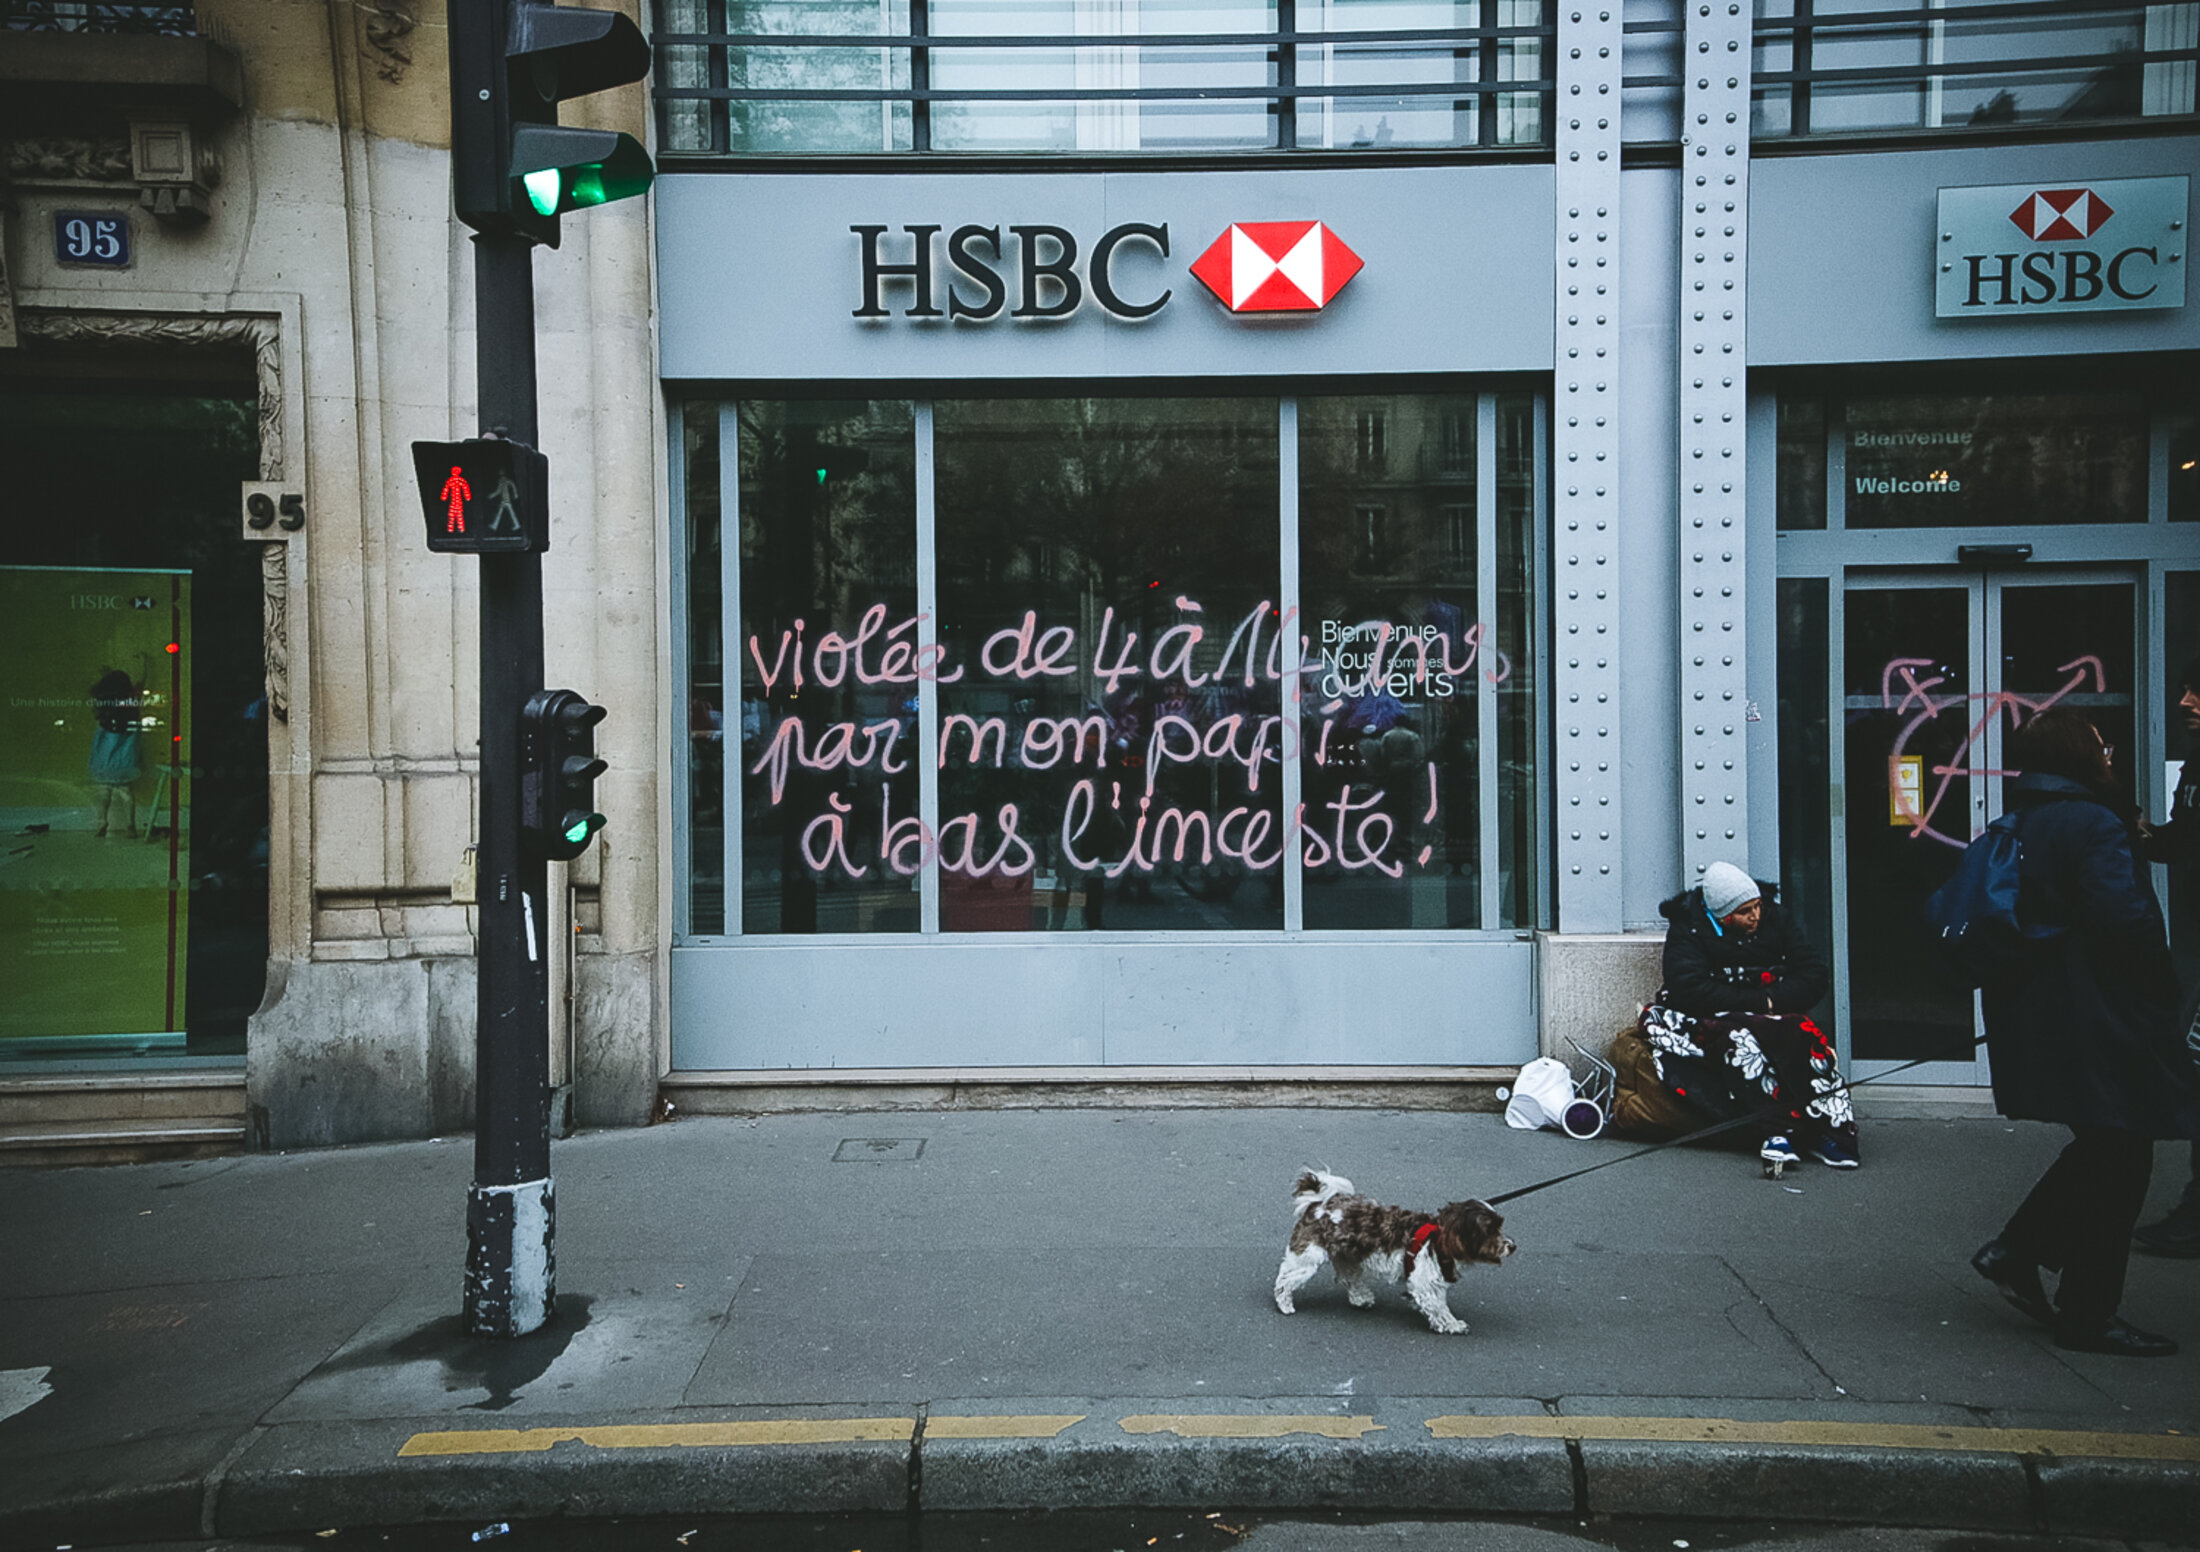 95
HSBC
HSBC
Bienvenue
Welcome
95
HSBC
Une histoire d'ambition
violée de 4 à 14 ans
par mon papi
à bas l'inceste !
Bienvenue
Nous sommes
ouverts